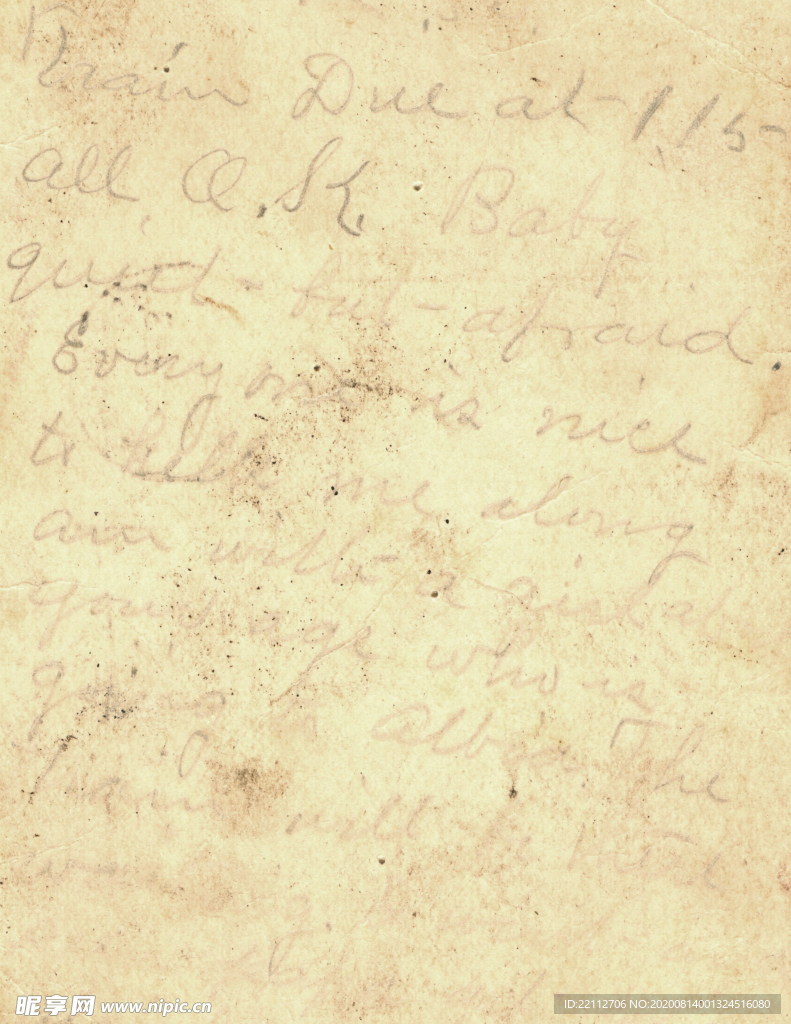 Train Due at 115
all O.K. Baby
quiet - but - afraid.
Everyone is nice
to help me along
am with a girl about
your age who is
going to Albia The
train will be
昵享网 www.nipic.cn
ID:22112706 NO:20200814001324516080